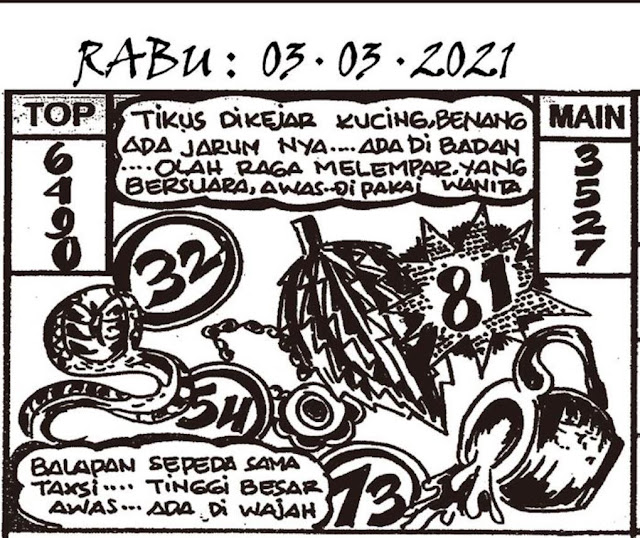 RABU : 03·03·2021
TOP
6
4
9
0
TIKUS DIKEJAR KUCING, BENANG
ADA JARUM NYA.... ADA DI BADAN
....OLAH RAGA MELEMPAR, YANG
BERSUARA, AWAS--DI PAKAI WANITA
MAIN
3
5
2
7
32
81
54
BALAPAN SEPEDA SAMA
TAXSI.... TINGGI BESAR
AWAS... ADA DI WAJAH
73